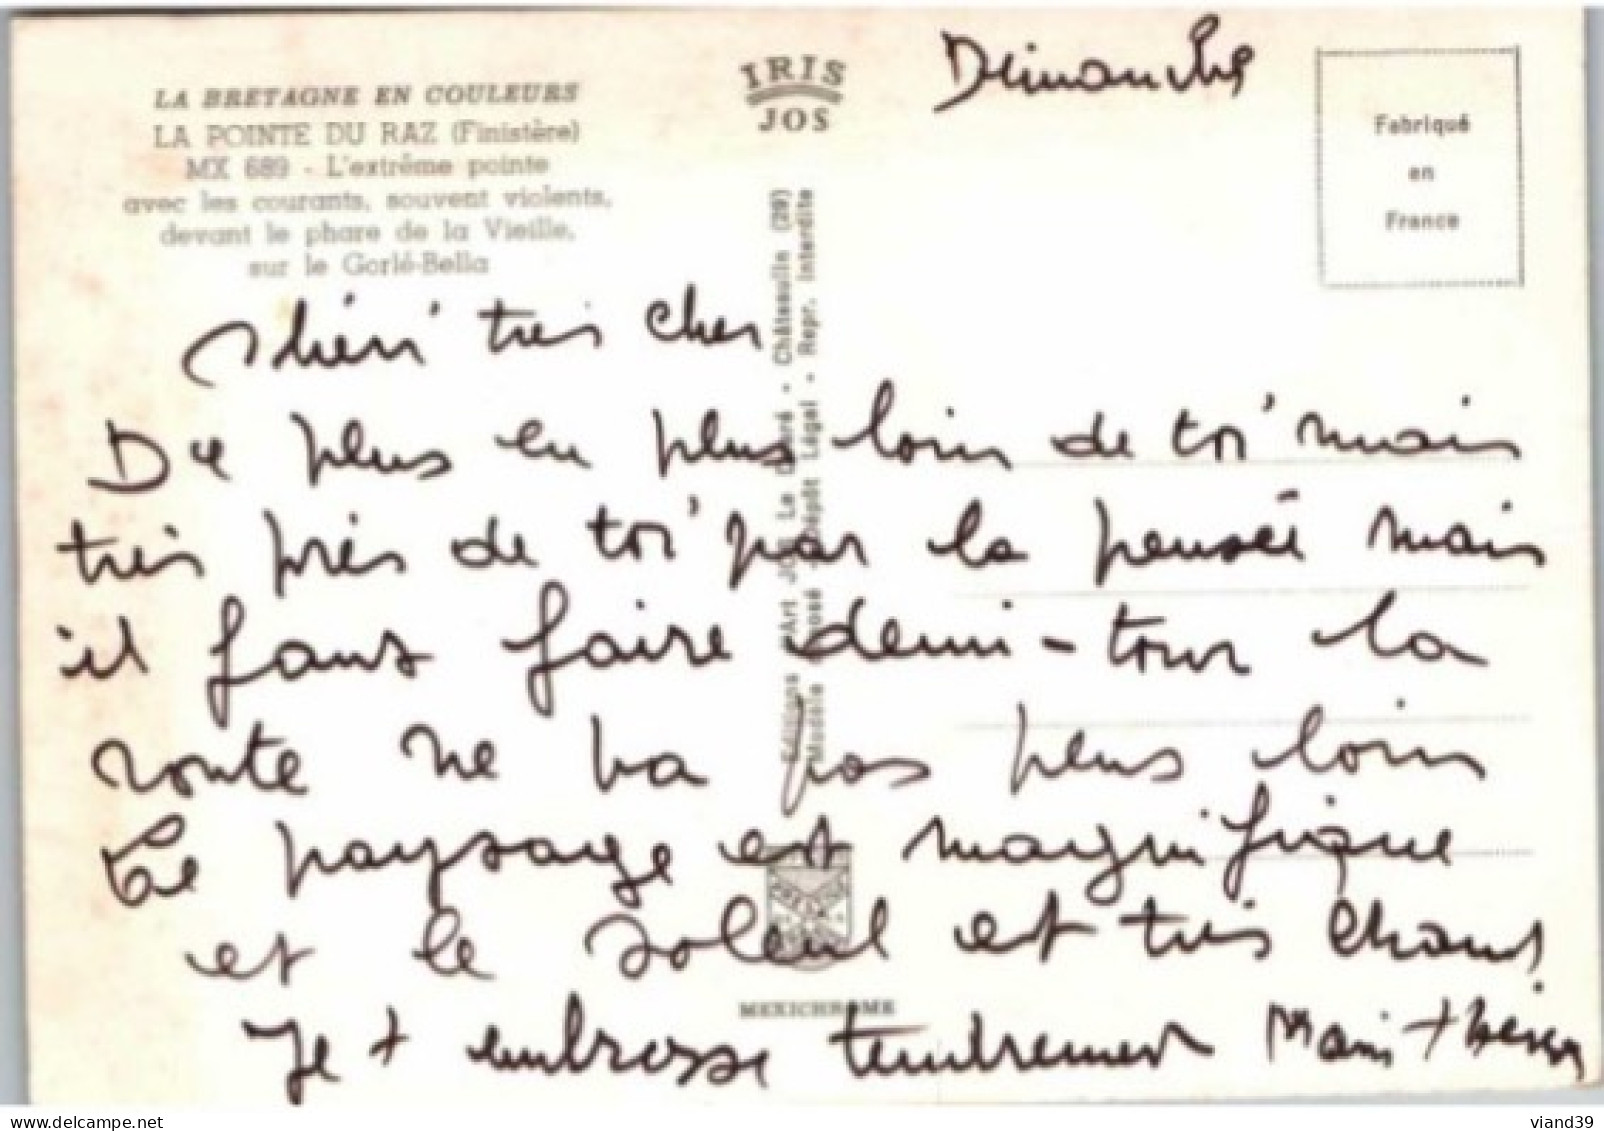 LA BRETAGNE EN COULEURS
LA POINTE DU RAZ (Finistère)
MX 689 - L'extrême pointe
avec les courants, souvent violents,
devant le phare de la Vieille,
sur le Gorlé-Bella
IRIS
JOS
Dimanche
Fabriqué
en
France
Editions d'Art JOS Le Doaré - Châteaulin (29)
Modèle déposé - Dépôt Légal - Repr. interdite
chéri très cher
De plus en plus loin de toi mais
très près de toi par la pensée mais
il faut faire demi-tour la
route ne va pas plus loin
Le paysage est magnifique
et le soleil est très chaud
Je t embrasse tendrement
MEXICHROME
viand39